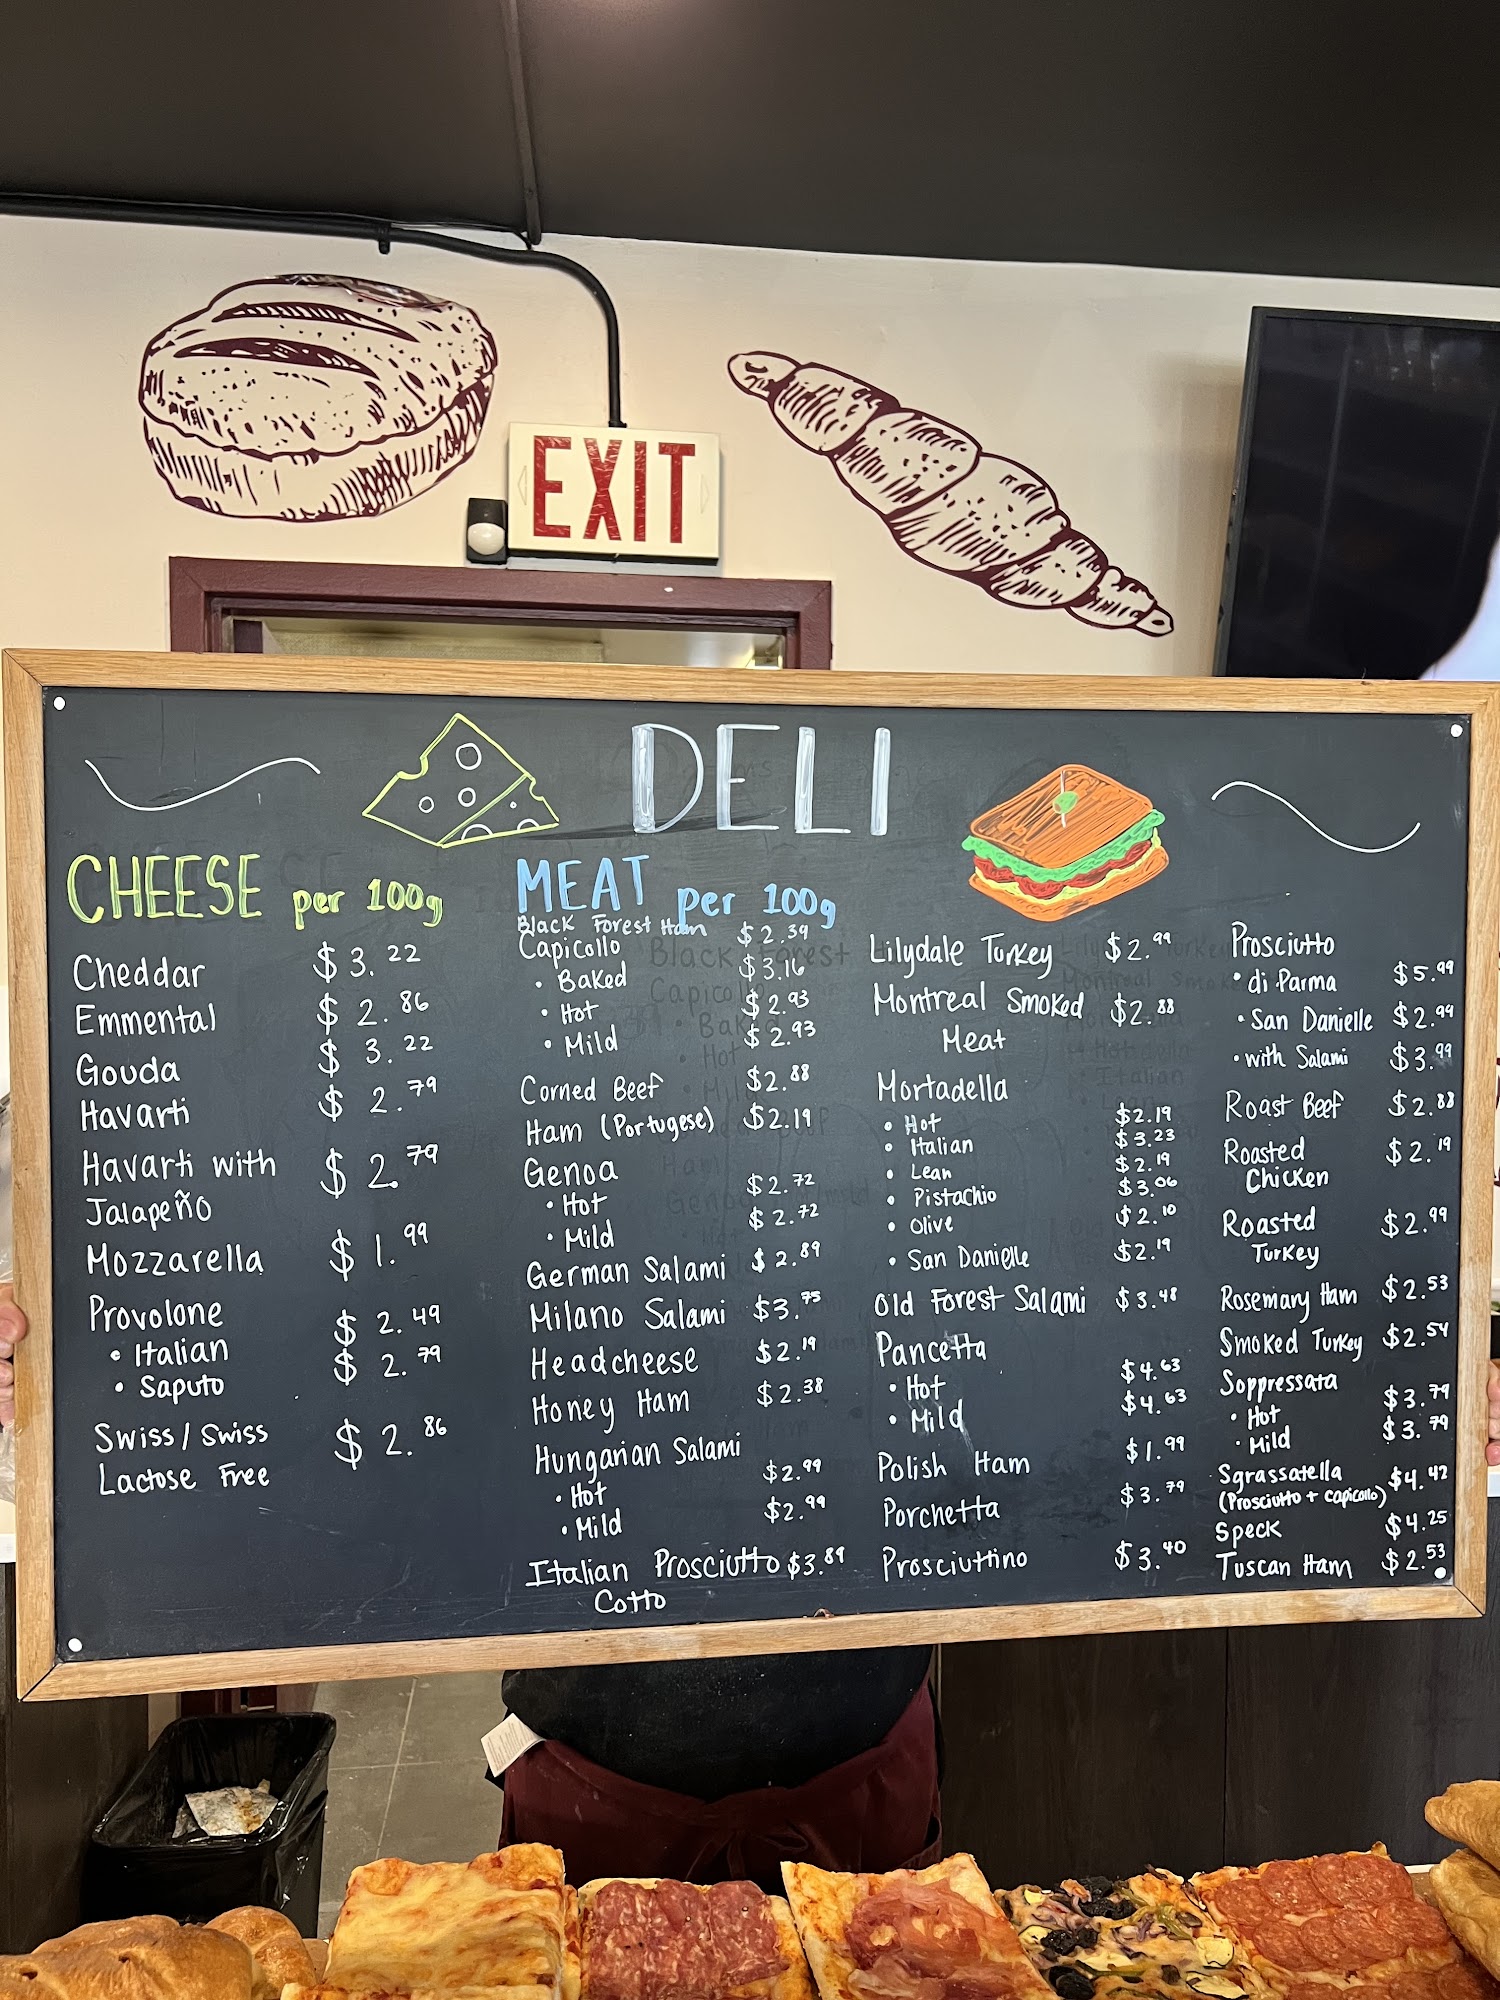 EXIT
DELI
CHEESE per 100g
Cheddar $3.22
Emmental $2.86
Gouda $3.22
Havarti $2.79
Havarti with $2.79
Jalapeño
Mozzarella $1.99
Provolone
• Italian $2.49
• Saputo $2.79
Swiss/Swiss $2.86
Lactose Free
MEAT per 100g
Black Forest Ham $2.39
Capicollo
• Baked $3.16
• Hot $2.93
• Mild $2.93
Corned Beef $2.88
Ham (Portugese) $2.19
Genoa
• Hot $2.72
• Mild $2.72
German Salami $2.89
Milano Salami $3.75
Headcheese $2.19
Honey Ham $2.38
Hungarian Salami
• Hot $2.99
• Mild $2.99
Italian Prosciutto $3.89
Cotto
Lilydale Turkey $2.99
Montreal Smoked $2.88
Meat
Mortadella
• Hot $2.19
• Italian $3.23
• Lean $2.19
• Pistachio $3.06
• Olive $2.10
• San Danielle $2.19
Old Forest Salami $3.48
Pancetta
• Hot $4.63
• Mild $4.63
Polish Ham $1.99
Porchetta $3.79
Prosciuttino $3.40
Prosciutto
• di Parma $5.99
• San Danielle $2.99
• with Salami $3.99
Roast Beef $2.88
Roasted $2.19
Chicken
Roasted $2.99
Turkey
Rosemary Ham $2.53
Smoked Turkey $2.54
Soppressata
• Hot $3.79
• Mild $3.79
Sgrassatella $4.42
(Prosciutto + capicollo)
Speck $4.25
Tuscan Ham $2.53